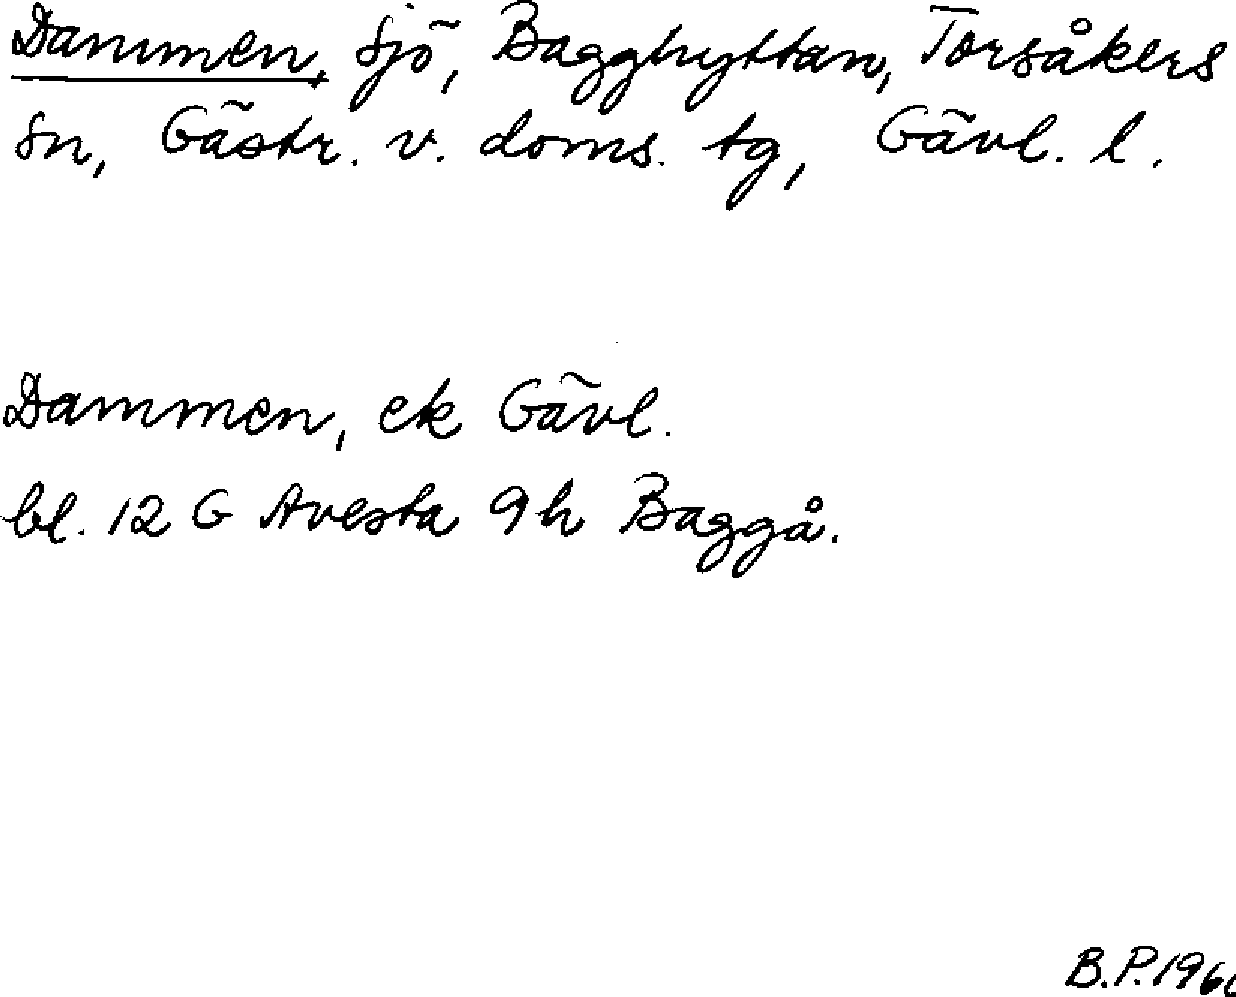 Dammen, sjö, Bagghyttan, Torsåkers
sn, Gästr. v. doms. tg, Gävl. l.
Dammen, ek Gävl.
bl. 12 G Avesta 9h Baggå.
B.P.